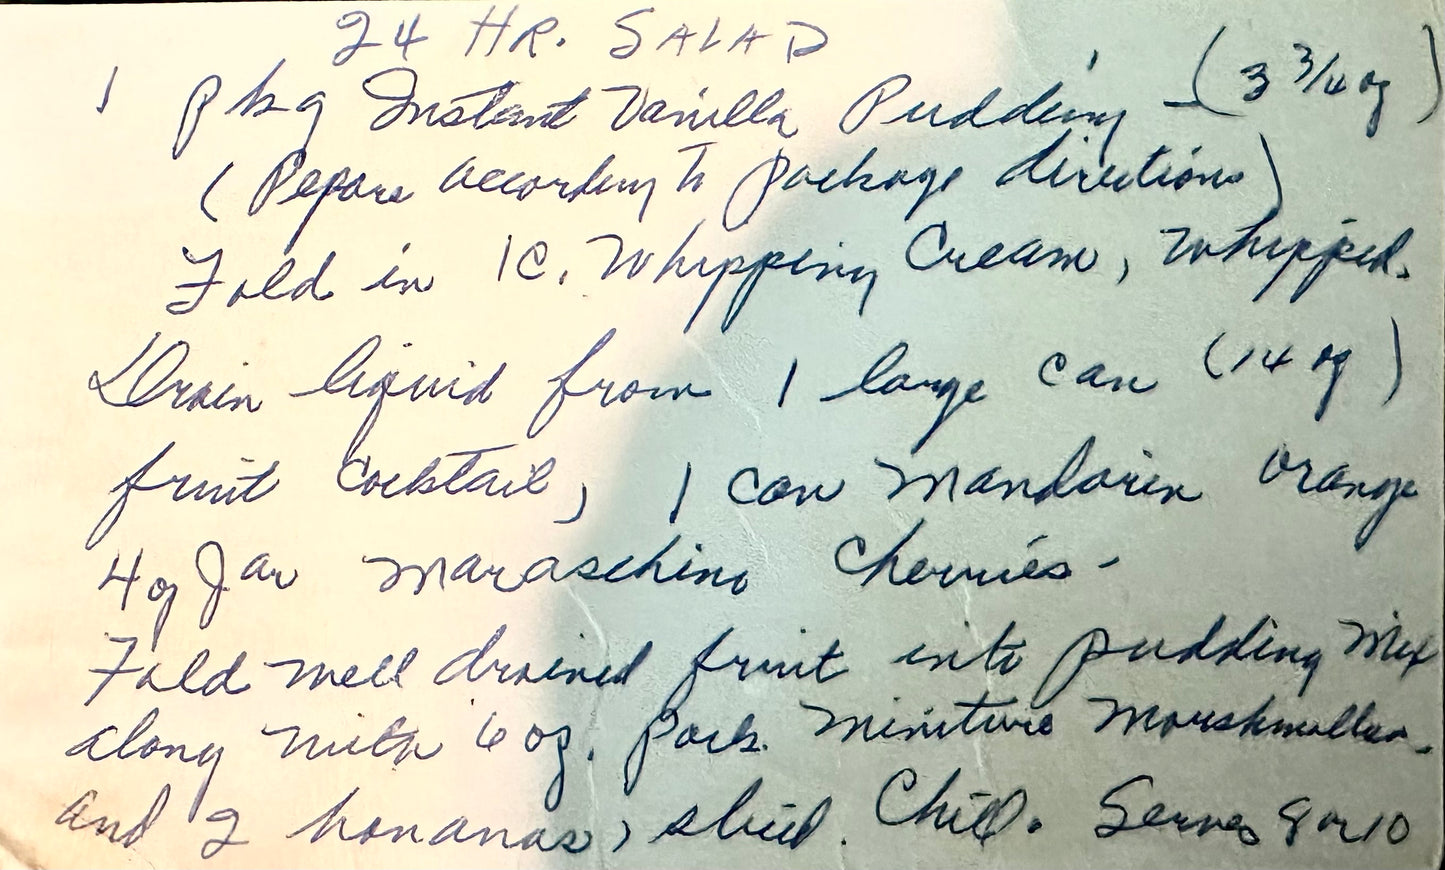 24 HR. SALAD
1 pkg Instant Vanilla Pudding - (3 3/4 oz)
(Pepare according to package directions)
Fold in 1 C. Whipping Cream, Whipped.
Drain liquid from 1 large can (14 oz)
fruit cocktail, 1 can Mandarin Orange
4 oz Jar Maraschino Cherries -
Fold well drained fruit into pudding Mix
along with 6 oz. pack. Miniture Marshmallow.
and 2 bananas, sliced. Chill. Serves 8 or 10